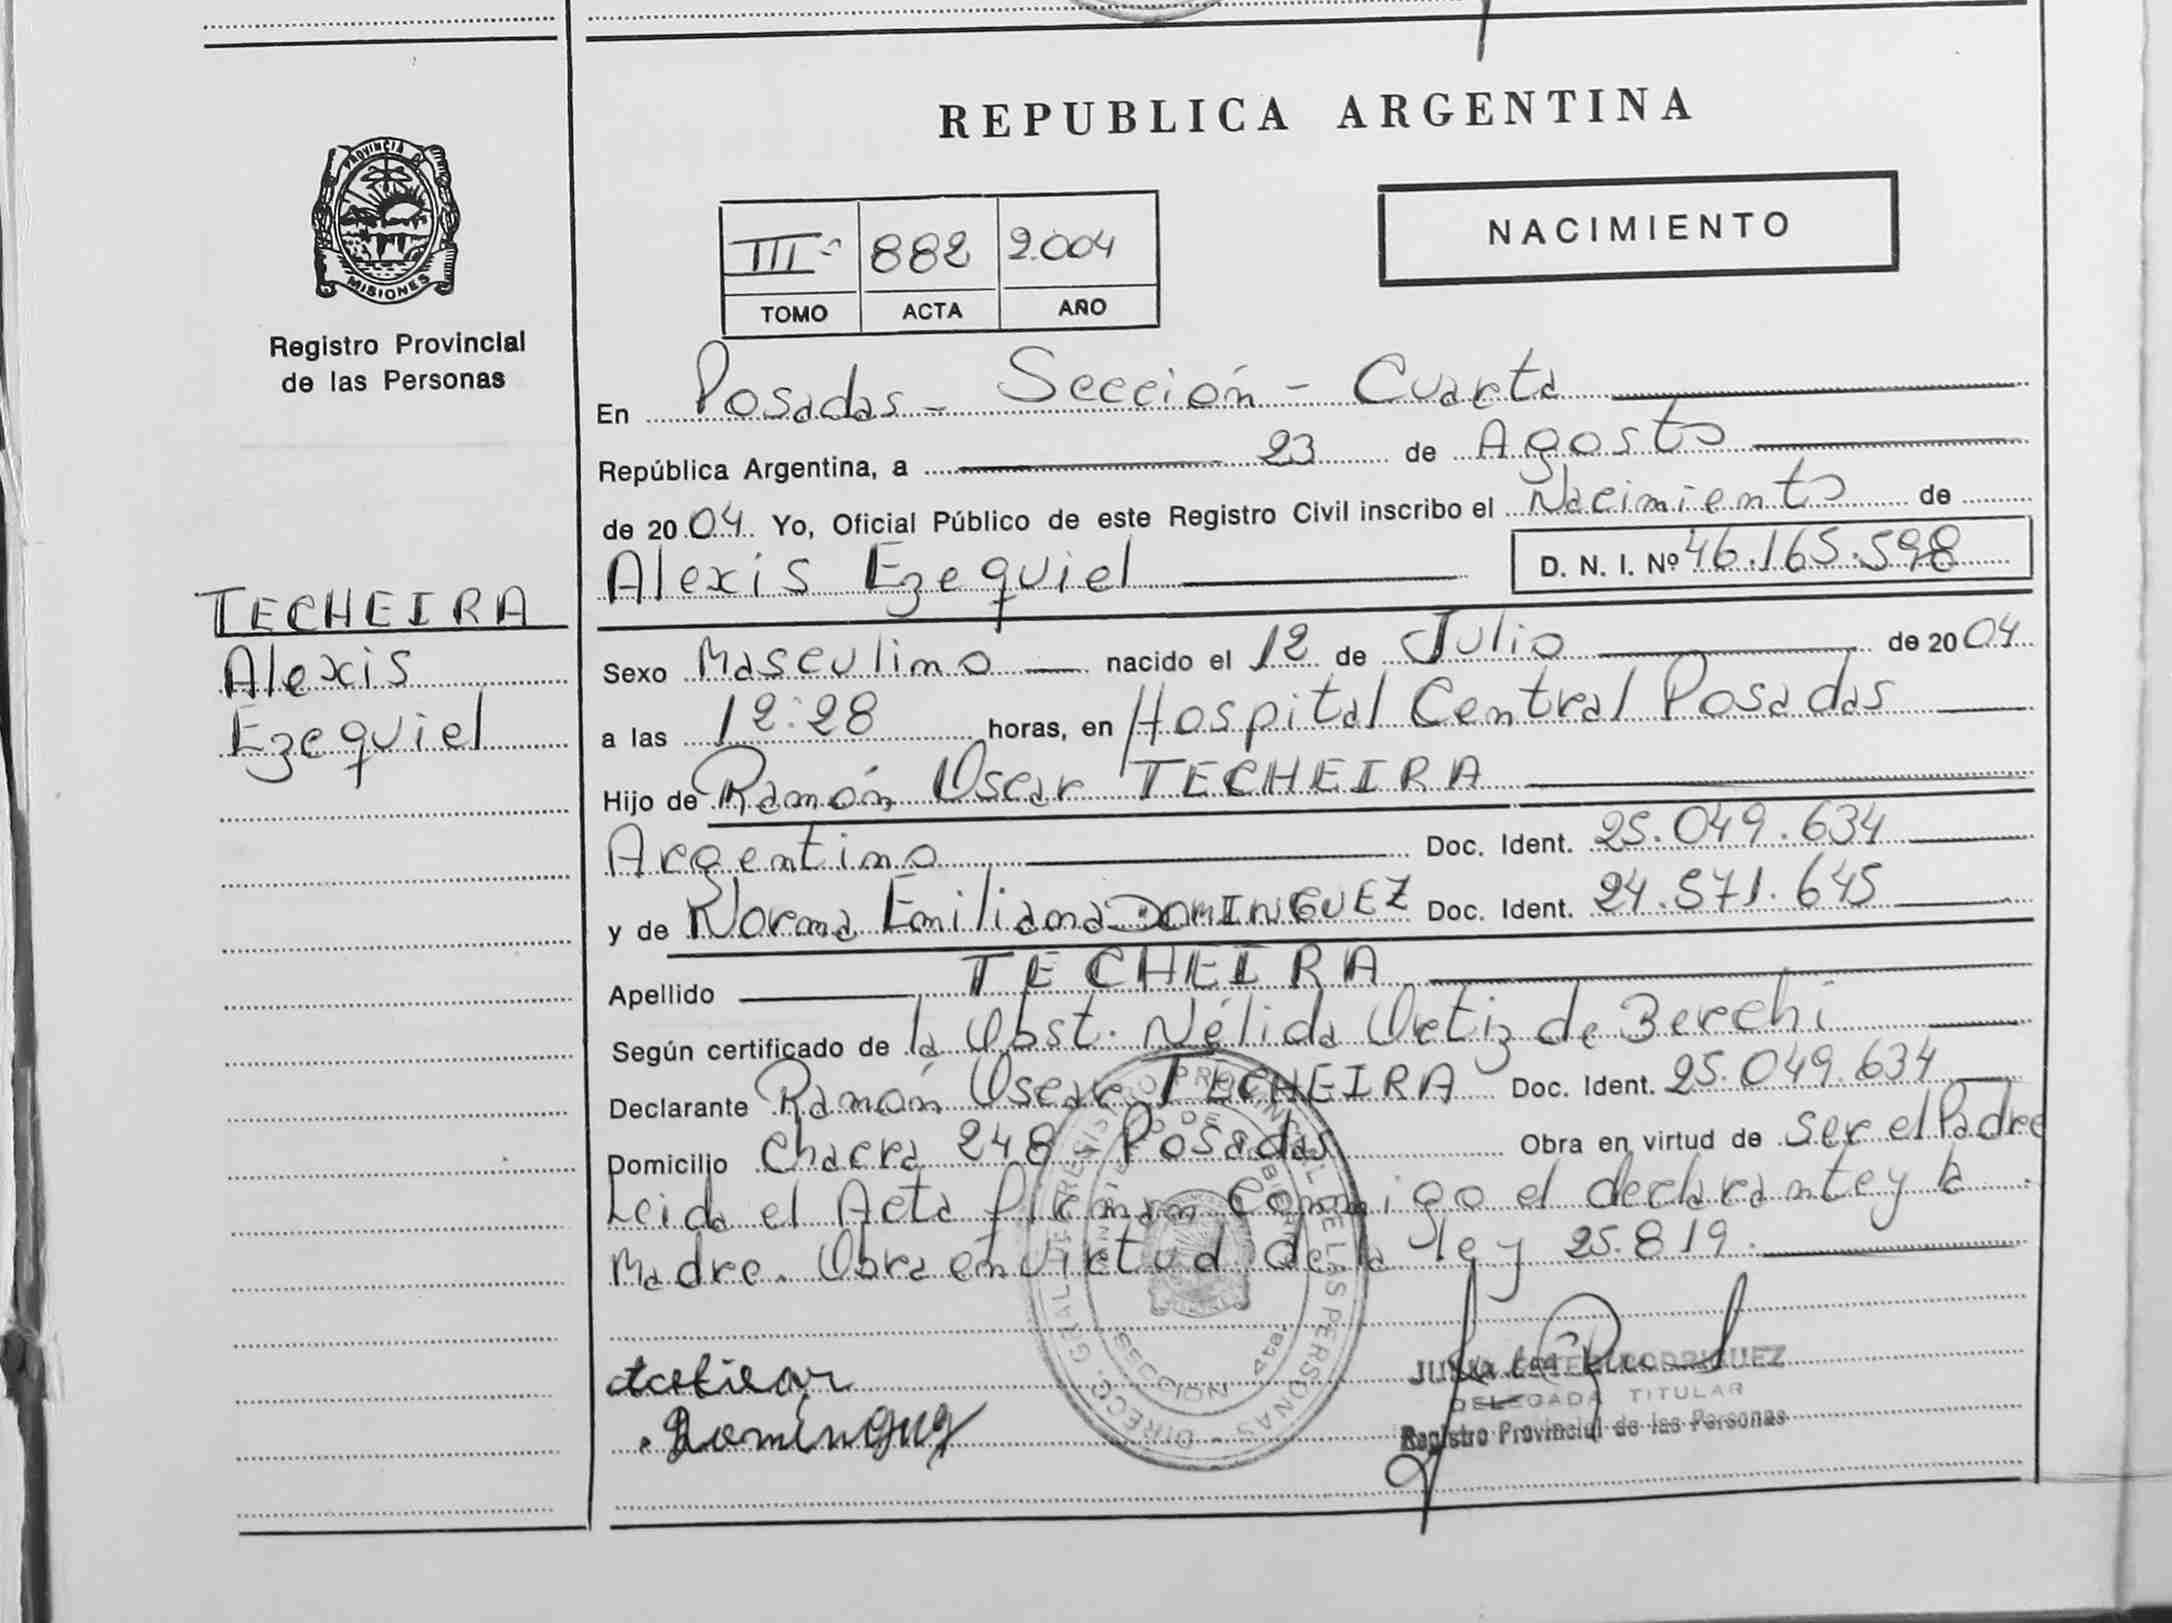 REPUBLICA ARGENTINA
NACIMIENTO
PROVINCIA DE
MISIONES
Registro Provincial
de las Personas
III 882 2.004
TOMO ACTA AÑO
En Posadas - Sección - Cuarta
República Argentina, a 23 de Agosto
de 2004 Yo, Oficial Público de este Registro Civil inscribo el Nacimiento de
Alexis Ezequiel D. N. I. Nº 46.165.598
TECHEIRA
Alexis
Ezequiel
Sexo Masculino nacido el 12 de Julio de 2004
a las 12:28 horas, en Hospital Central Posadas
Hijo de Ramón Oscar TECHEIRA
Argentino Doc. Ident. 25.049.634
y de Norma Emiliana DOMINGUEZ Doc. Ident. 24.571.645
Apellido TECHEIRA
Según certificado de la Obst. Nélida Ortiz de Berchi
Declarante Ramón Oscar TECHEIRA Doc. Ident. 25.049.634
Domicilio Chacra 248 - Posadas Obra en virtud de ser el Padre
Leida el Acta firman conmigo el declarante y la
Madre. Obra en virtud de la ley 25.819.
DIRECC. GRAL. DE REGISTRO PROVINCIAL DE LAS PERSONAS
SECCION 4ta
Dominguez
RODRIGUEZ
DELEGADA TITULAR
Registro Provincial de las Personas